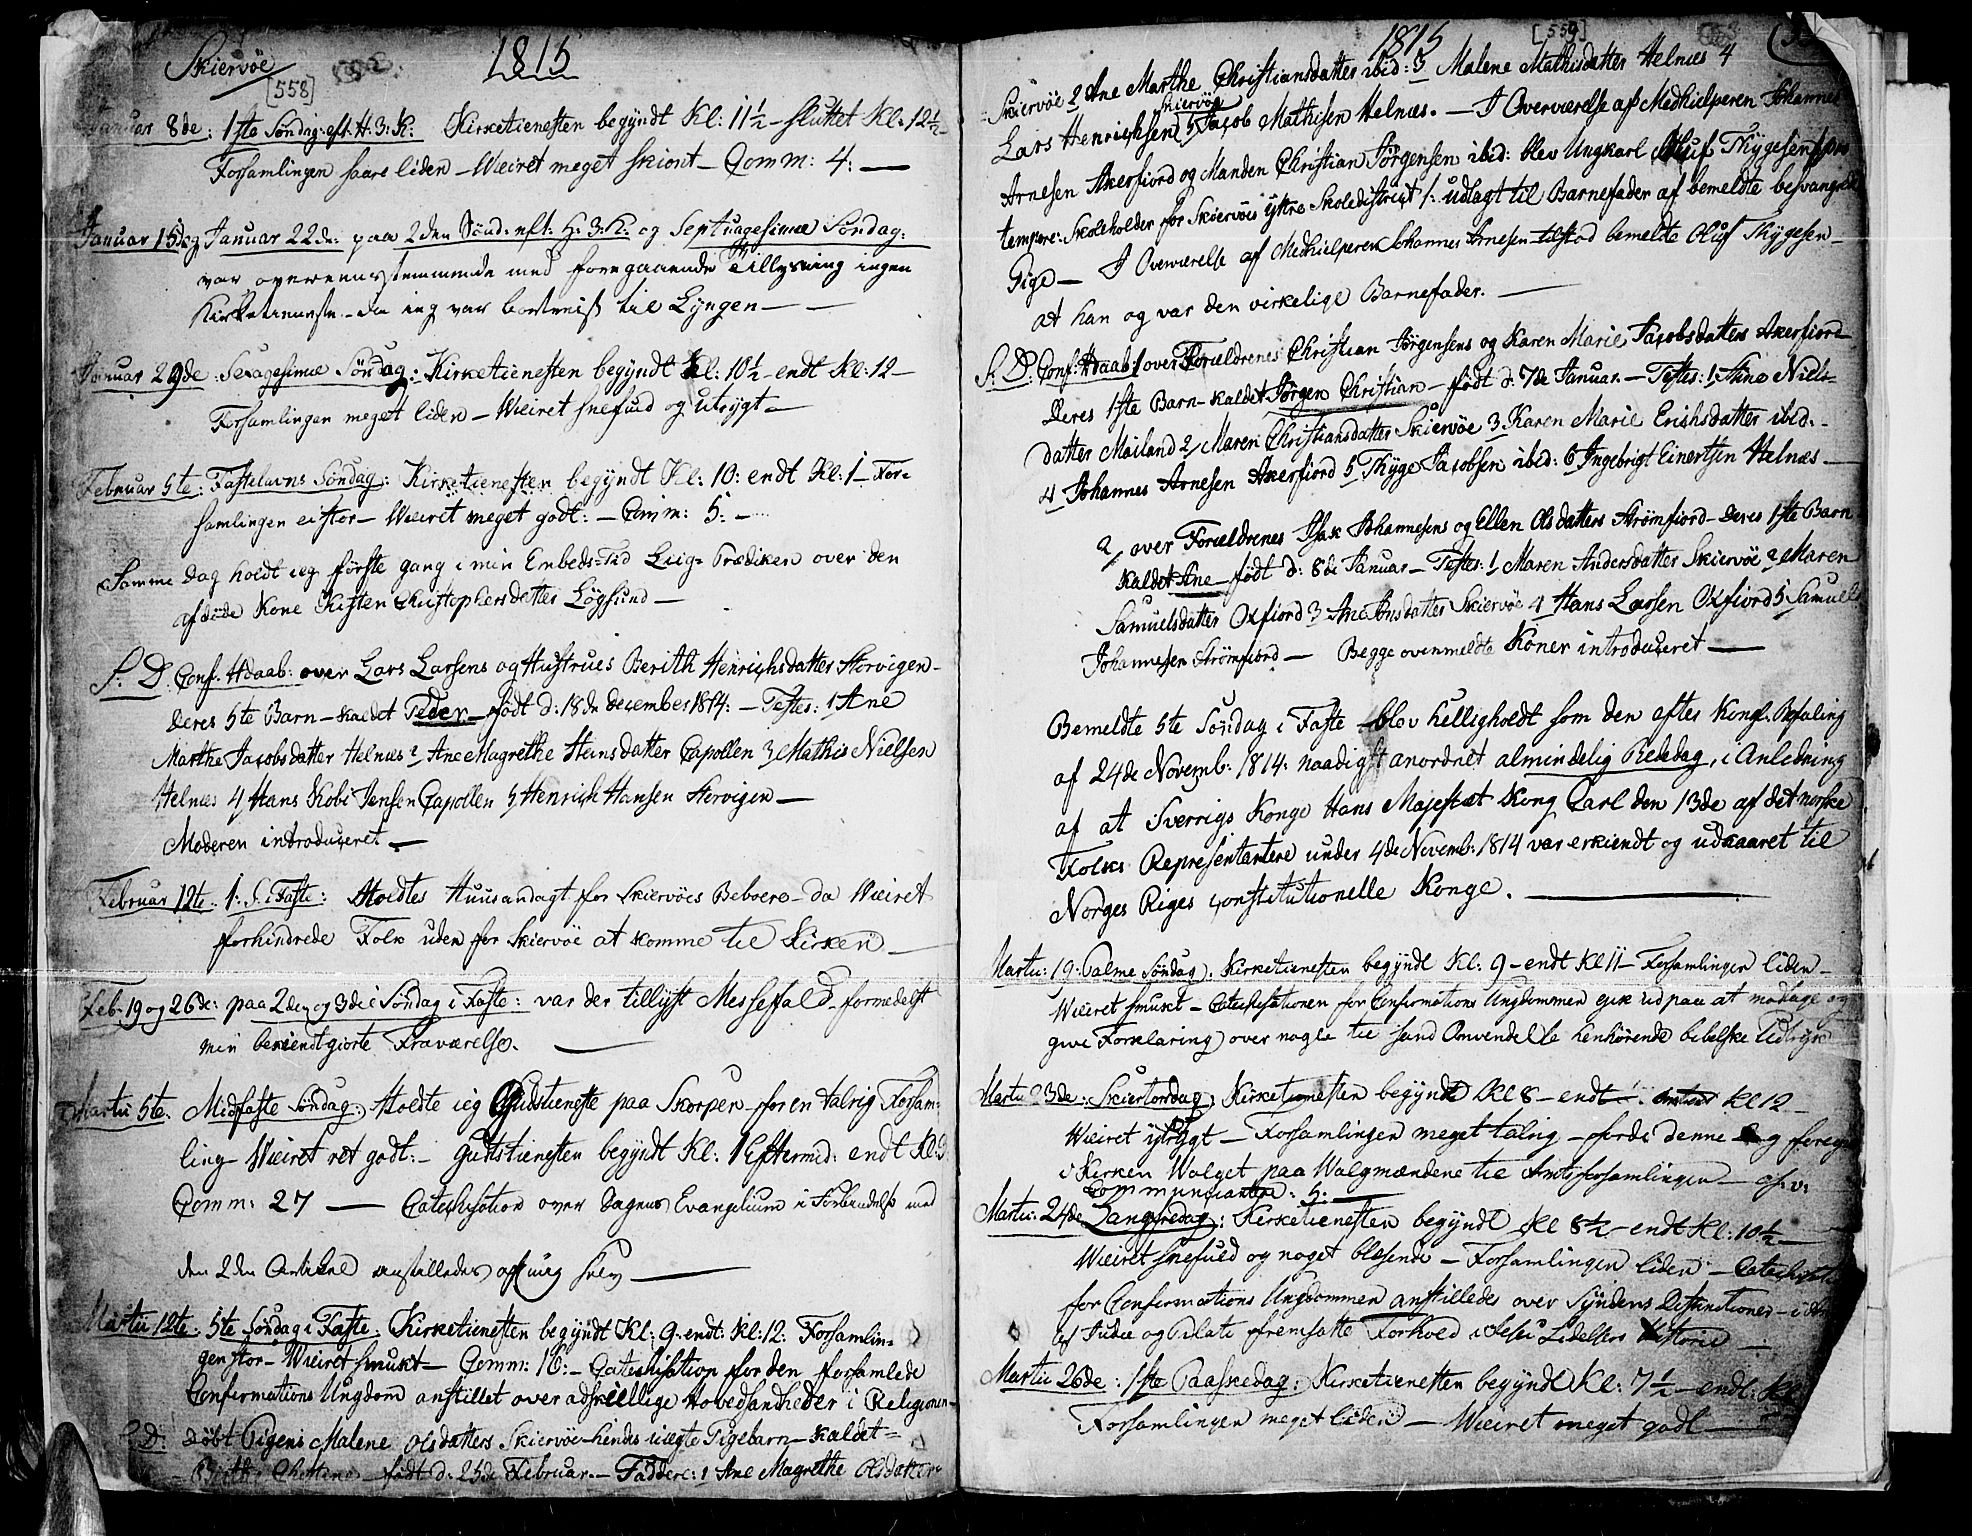 Skiervöe
1815
[558]
Januar 8de: 1ste Søndag eft. H. 3. K. Kirketienesten begyndt Kl: 11½ - sluttet Kl. 12½
Forsamlingen saare liden - Weiret meget skiont - Comm: 4: -
Januar 15de og Januar 22de: paa 2den Sønd: eft: H: 3: K: og Septuagesimæ Søndag:
var overeenstemmende med foregaaende Tillysning ingen
Kirketieneste - da ieg var bortreist til Lyngen -
Januar 29de Sexagesimæ Søndag: Kirketienesten begyndt Kl: 10½ - endt Kl: 12 -
Forsamlingen meget liden - Weiret snefuld og utrygt -
Februar 5te: Fastelavns Søndag: Kirketienesten begyndt Kl: 10: endt Kl: 1 - For=
samlingen ei stor - Weiret meget godt: - Comm: 5: -
Samme Dag holdt ieg første gang i min Embeds=Tid Liig=Prædiken over den
afdøde Kone Kisten Christophersdatter Løgsund -
S. D. Conf. Hdaab: over Lars Larsens og Hustrues Berith Henrichsdatter Storvigen -
deres 5te Barn - kaldet Peder - født d: 18de december 1814: - Testes: 1 Ane
Marthe Jacobsdatter Helnæs 2 Ane Magrethe Hansdatter Capollen 3 Mathis Nielsen
Helnæs 4 Hans Kobi Jensen Capollen 5 Henrich Hansen Storvigen -
Moderen introduceret -
Februar 12te. 1: S. i Faste: Holdtes Huusandagt for Skiervöes Beboere - da Weiret
forhindrede Folk uden for Skiervöe at komme til Kirken -
Feb. 19 og 26de: paa 2den og 3die Søndag i Faste: var der tillyst Messefald - formedelst
min bekiendtgiorte Fraværelse. -
Martii 5te. Midfaste Søndag: Holdte ieg Gudstieneste paa Skorpen - for en talrig Forsam=
ling - Weiret ret godt: - Gudstienesten begyndt Kl: 1 Eftermid: endt Kl: 3
Comm: 27 - Catechisation over Dagens Evangelium i Forbindelse med
den 2den Artikel anstilledes af mig selv -
Martii 12te: 5te Søndag i Faste. Kirketienesten begyndt Kl: 9 - endt: Kl: 12: Forsamlin=
gen stor - Weiret smukt - Comm: 16: - Catechisation for den forsamlede
Confirmations Ungdom anstillet over adskillige Hovedsandheder i Religionen -
S. D: Döbt Pigens Malene Olsdatters Skiervöe - hendes uægte Pigebarn - kaldet=
født d: 25de Februar. - Faddere: 1 Ane Magrethe Olsdatter
1815
[559]
Skiervöe 2 Ane Marthe Christiansdatter ibid: 3 Malene Mathisdatter Helnæs 4
Lars Henrichsen Skiervöe 5 Jacob Mathisen Helnæs. - I Overværelse af Medhielperen Johannes
Arnesen Akerfiord og Manden Christian Jörgensen ibid: blev Ungkarl Oluf Thygesen pro
tempore: Skoleholder for Skiervöes ÿttre Skoledistrigt /: udlagt til Barnefader af bemeldte besvangrede
Pige - I Overværelse af Medhielperen Johannes Arnesen tilstod bemeldte Oluf Thygesen -
at han og var den virkelige Barnefader. -
S. D: Conf: Hdaab: 1 over Forældrenes Christian Jörgensens og Karen Marie Jacobsdatters Akerfiord
deres 1ste Barn - kaldet Jörgen Christian - født d: 7de Januar. - Testes: 1 Stine Niels=
datter Mailand 2 Maren Christiansdatter Skiervöe 3 Karen Marie Erichsdatter ibid. -
4 Johannes Arnesen Akerfiord 5 Thyge Jacobsen ibid: 6 Ingebrigt Einertsen Helnæs -
2 over Forældrenes Isak Johannesens og Ellen Olsdatters Strömfiord - deres 1ste Barn
kaldet Ane - født d: 8de Januar - Testes: 1 Maren Andersdatter Skiervöe 2 Maren
Samuelsdatter Oxfiord 3 Ane Jonsdatter Skiervöe 4 Hans Larsen Oxfiord 5 Samuel
Johannesen Strömfiord - Begge ovenmeldte Koner introduceret -
Bemeldte 5te Søndag i Faste blev helligholdt som den efter Kongl. Befaling
af 24de Novemb: 1814: naadigst anordnet almindelig Bededag, i Anledning
af at Sverrigs Konge Hans Majestæt Kong Carl den 13de af det norske
Folks Representantere under 4de Novemb: 1814 var erkiendt og udkaaret til
Norges Riges constitutionelle Konge. -
Martii: 19: Palme Søndag: Kirketienesten begyndt Kl: 9 - endt Kl 11 - Forsamlingen liden -
Weiret smukt - Catechisationen for Confirmations Ungdommen gik ud paa at modtage og
give Forklaring over nogle til sand Omvendelse henhørende bibelske Udtryk
Martii 23de: Skiertorsdag: Kirketienesten begyndt Kl 8 - endt Kl 12 -
Weiret ÿtrÿgt - Forsamlingen meget talrig - fordi denne Dag foregik
i Kirken Valget paa Valgmændene til Amtsforsamlingen - o: s: v:
Communicantere: 5: -
Martii: 24de Langfredag: Kirketienesten begyndt Kl 8½ - endt Kl: 10½ -
Weiret snefuld og noget blæsende - Forsamlingen liden - Catechisation
for Confirmations Ungdommen anstilledes over Syndens Distinctioner - i
af Judæ og Pilati fremsatte Forhold i Jesu Lidelses Historie -
Martii 26de: 1ste Paaskedag: Kirketienesten begyndt Kl: 7½ - endt: Kl
Forsamlingen meget liden - Weiret meget godt -